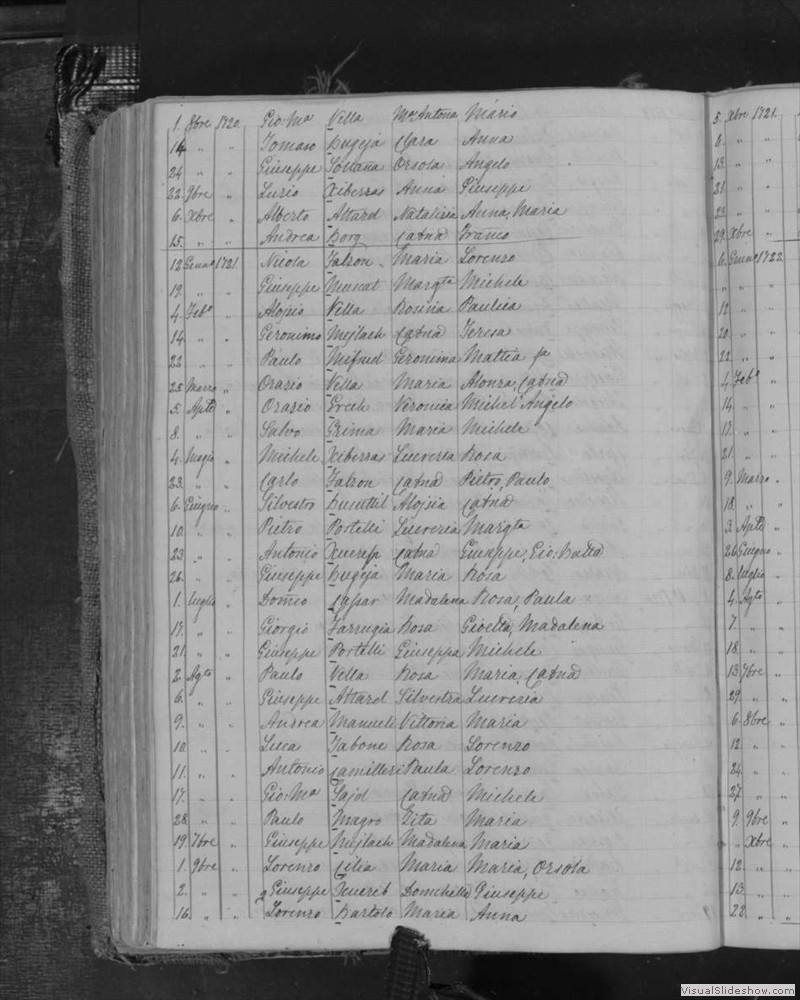 1. 8bre 1720. Gio: Mª Vella Mª Antona Mario
14 " " Tomaso Bugeja Clara Anna
24 " " Giuseppe Sonana Orsola Angelo
22. 9bre " Luzio Xiberras Anna Giuseppe
6. Xbre " Alberto Attard Natalizia Anna, Maria
15. " " Andrea Borg Catnà Franco
12 Gennº 1721. Nicola Falzon Maria Lorenzo
19. " " Giuseppe Muscat Margta Michele
4. Febº " Aloisio Vella Rosina Paulica
14. " " Geronimo Mejlach Catnà Teresa
22 " " Paulo Mifsud Geronima Mattia
25 Marzo " Orazio Vella Maria Alonza, Catnà
5. Aple " Orazio Ereh Veronica Michel'Angelo
8. " " Salvo Grima Maria Michele
4. Magio " Michele Xiberras Lucrezia Rosa
23. " " Carlo Falzon Catnà Pietro, Paulo
6. Giugno " Silvestro Busuttil Aloisia Catnà
10. " " Pietro Portelli Lucrezia Margta
23 " " Antonio Xueref Catnà Giuseppe, Gio: Batta
26. " " Giuseppe Bugeja Maria Rosa
1. luglio " Domco Cassar Madalena Rosa, Paula
17. " " Giorgio Farrugia Rosa Gioetta, Madalena
21. " " Giuseppe Portelli Giuseppa Michele
2. Agto " Paulo Vella Rosa Maria, Catnà
6. " " Giuseppe Attard Silvestra Lucrezia
9. " " Andrea Manueli Vittoria Maria
10. " " Luca Tabone Rosa Lorenzo
11. " " Antonio Camilleri Paula Lorenzo
17. " " Gio: Mª Sajd Catnà Michele
28. " " Paulo Magro Zita Maria
19 7bre " Giuseppe Mejlach Madalena Maria
1. 9bre " Lorenzo Cilia Maria Maria, Orsola
2. " " Giuseppe Xuereb Domchella Giuseppe
16. " " Lorenzo Bartolo Maria Anna
5. Xbre 1721.
6. " "
13. " "
21. " "
23. " "
29. Xbre "
6. Gennº 1722.
" "
12. " "
20. " "
22. " "
4. Febº "
14. " "
17. " "
21. " "
9. Marzo "
18. " "
3. Aple "
26. Giugno "
8. luglio "
4. Agto "
7. " "
18. " "
13. 7bre "
29. " "
6. 8bre "
12. " "
24. " "
27. " "
9. 9bre "
" Xbre "
12. " "
13. " "
22. " "
VisualSlideshow.com